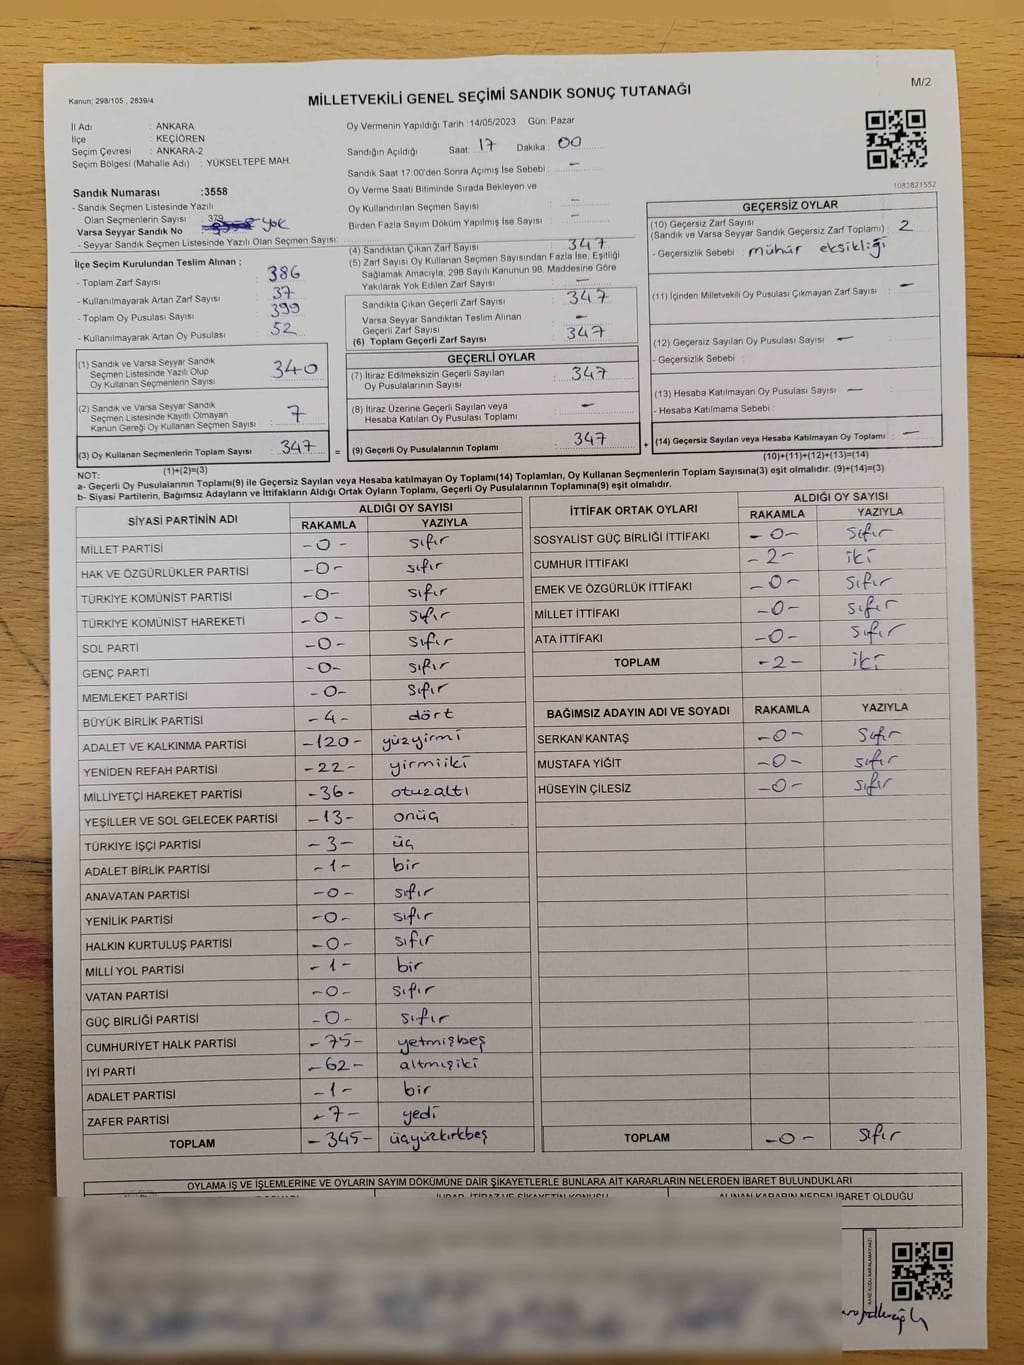 Kanun: 298/105 , 2839/4
MİLLETVEKİLİ GENEL SEÇİMİ SANDIK SONUÇ TUTANAĞI
M/2
İl Adı : ANKARA
İlçe : KEÇİÖREN
Seçim Çevresi : ANKARA-2
Seçim Bölgesi (Mahalle Adı) : YÜKSELTEPE MAH.
Oy Vermenin Yapıldığı Tarih : 14/05/2023 Gün: Pazar
Sandığın Açıldığı Saat: 17 Dakika : 00
Sandık Saat 17:00'den Sonra Açımış İse Sebebi : —
Oy Verme Saati Bitiminde Sırada Bekleyen ve
Oy Kullandırılan Seçmen Sayısı : —
Birden Fazla Sayım Döküm Yapılmış İse Sayısı : —
1083821552
Sandık Numarası :3558
- Sandık Seçmen Listesinde Yazılı
Olan Seçmenlerin Sayısı : 379
Varsa Seyyar Sandık No : yok
- Seyyar Sandık Seçmen Listesinde Yazılı Olan Seçmen Sayısı:
İlçe Seçim Kurulundan Teslim Alınan ;
- Toplam Zarf Sayısı : 386
- Kullanılmayarak Artan Zarf Sayısı : 37
- Toplam Oy Pusulası Sayısı : 399
- Kullanılmayarak Artan Oy Pusulası : 52
(1) Sandık ve Varsa Seyyar Sandık
Seçmen Listesinde Yazılı Olup
Oy Kullanan Seçmenlerin Sayısı : 340
(2) Sandık ve Varsa Seyyar Sandık
Seçmen Listesinde Kayıtlı Olmayan
Kanun Gereği Oy Kullanan Seçmen Sayısı : 7
(3) Oy Kullanan Seçmenlerin Toplam Sayısı : 347
(1)+(2)=(3)
(4) Sandıktan Çıkan Zarf Sayısı : 347
(5) Zarf Sayısı Oy Kullanan Seçmen Sayısından Fazla İse, Eşitliği
Sağlamak Amacıyla; 298 Sayılı Kanunun 98. Maddesine Göre
Yakılarak Yok Edilen Zarf Sayısı : —
Sandıkta Çıkan Geçerli Zarf Sayısı : 347
Varsa Seyyar Sandıktan Teslim Alınan
Geçerli Zarf Sayısı : —
(6) Toplam Geçerli Zarf Sayısı : 347
GEÇERLİ OYLAR
(7) İtiraz Edilmeksizin Geçerli Sayılan
Oy Pusulalarının Sayısı : 347
(8) İtiraz Üzerine Geçerli Sayılan veya
Hesaba Katılan Oy Pusulası Toplamı : —
= (9) Geçerli Oy Pusulalarının Toplamı : 347
GEÇERSİZ OYLAR
(10) Geçersiz Zarf Sayısı
(Sandık ve Varsa Seyyar Sandık Geçersiz Zarf Toplamı) : 2
- Geçersizlik Sebebi : mühür eksikliği
(11) İçinden Milletvekili Oy Pusulası Çıkmayan Zarf Sayısı : —
(12) Geçersiz Sayılan Oy Pusulası Sayısı : —
- Geçersizlik Sebebi :
(13) Hesaba Katılmayan Oy Pusulası Sayısı : —
- Hesaba Katılmama Sebebi :
+ (14) Geçersiz Sayılan veya Hesaba Katılmayan Oy Toplamı : —
(10)+(11)+(12)+(13)=(14)
NOT:
a- Geçerli Oy Pusulalarının Toplamı(9) ile Geçersiz Sayılan veya Hesaba katılmayan Oy Toplamı(14) Toplamları, Oy Kullanan Seçmenlerin Toplam Sayısına(3) eşit olmalıdır. (9)+(14)=(3)
b- Siyasi Partilerin, Bağımsız Adayların ve İttifakların Aldığı Ortak Oyların Toplamı, Geçerli Oy Pusulalarının Toplamına(9) eşit olmalıdır.
SİYASİ PARTİNİN ADI ALDIĞI OY SAYISI
RAKAMLA YAZIYLA
MİLLET PARTİSİ -0- sıfır
HAK VE ÖZGÜRLÜKLER PARTİSİ -0- sıfır
TÜRKİYE KOMÜNİST PARTİSİ -0- sıfır
TÜRKİYE KOMÜNİST HAREKETİ -0- sıfır
SOL PARTİ -0- sıfır
GENÇ PARTİ -0- sıfır
MEMLEKET PARTİSİ -0- sıfır
BÜYÜK BİRLİK PARTİSİ -4- dört
ADALET VE KALKINMA PARTİSİ -120- yüzyirmi
YENİDEN REFAH PARTİSİ -22- yirmiiki
MİLLİYETÇİ HAREKET PARTİSİ -36- otuzaltı
YEŞİLLER VE SOL GELECEK PARTİSİ -13- onüç
TÜRKİYE İŞÇİ PARTİSİ -3- üç
ADALET BİRLİK PARTİSİ -1- bir
ANAVATAN PARTİSİ -0- sıfır
YENİLİK PARTİSİ -0- sıfır
HALKIN KURTULUŞ PARTİSİ -0- sıfır
MİLLİ YOL PARTİSİ -1- bir
VATAN PARTİSİ -0- sıfır
GÜÇ BİRLİĞİ PARTİSİ -0- sıfır
CUMHURİYET HALK PARTİSİ -75- yetmişbeş
İYİ PARTİ -62- altmışiki
ADALET PARTİSİ -1- bir
ZAFER PARTİSİ -7- yedi
TOPLAM -345- üçyüzkırkbeş
İTTİFAK ORTAK OYLARI ALDIĞI OY SAYISI
RAKAMLA YAZIYLA
SOSYALİST GÜÇ BİRLİĞİ İTTİFAKI -0- sıfır
CUMHUR İTTİFAKI -2- iki
EMEK VE ÖZGÜRLÜK İTTİFAKI -0- sıfır
MİLLET İTTİFAKI -0- sıfır
ATA İTTİFAKI -0- sıfır
TOPLAM -2- iki
BAĞIMSIZ ADAYIN ADI VE SOYADI RAKAMLA YAZIYLA
SERKAN KANTAŞ -0- sıfır
MUSTAFA YİĞİT -0- sıfır
HÜSEYİN ÇİLESİZ -0- sıfır
TOPLAM -0- sıfır
OYLAMA İŞ VE İŞLEMLERİNE VE OYLARIN SAYIM DÖKÜMÜNE DAİR ŞİKAYETLERLE BUNLARA AİT KARARLARIN NELERDEN İBARET BULUNDUKLARI
İHBAR, İTİRAZ VE ŞİKAYETİN KONUSU ALINAN KARARIN NEDEN İBARET OLDUĞU